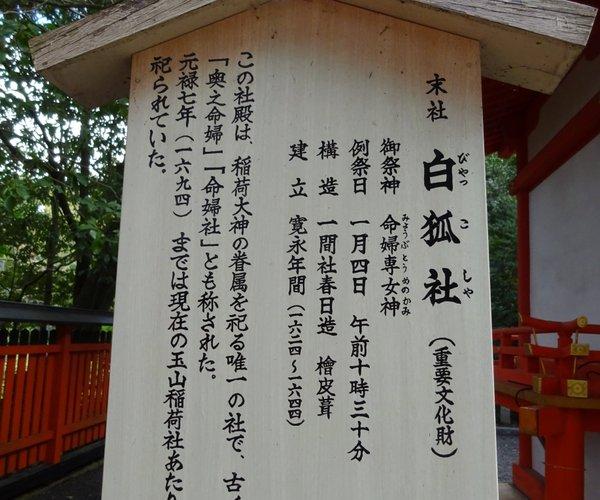 末社
白狐社（重要文化財）
びやっ こ しや
御祭神 命婦専女神
みょうぶとうめのかみ
例祭日 一月四日 午前十時三十分
構造 一間社春日造 檜皮葺
建立 寛永年間（一六二四～一六四四）
この社殿は、稲荷大神の眷属を祀る唯一の社で、古く
「奥之命婦」「命婦社」とも称された。
元禄七年（一六九四）までは現在の玉山稲荷社あたり
祀られていた。